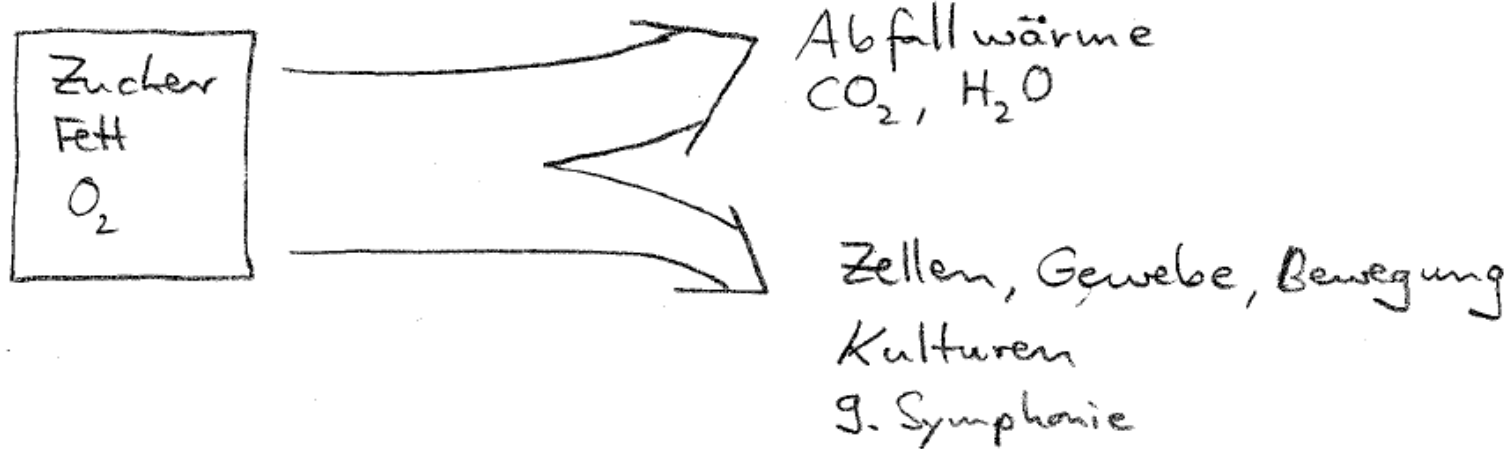 Zucker
Fett
O₂
Abfallwärme
CO₂, H₂O
Zellen, Gewebe, Bewegung
Kulturen
9. Symphonie